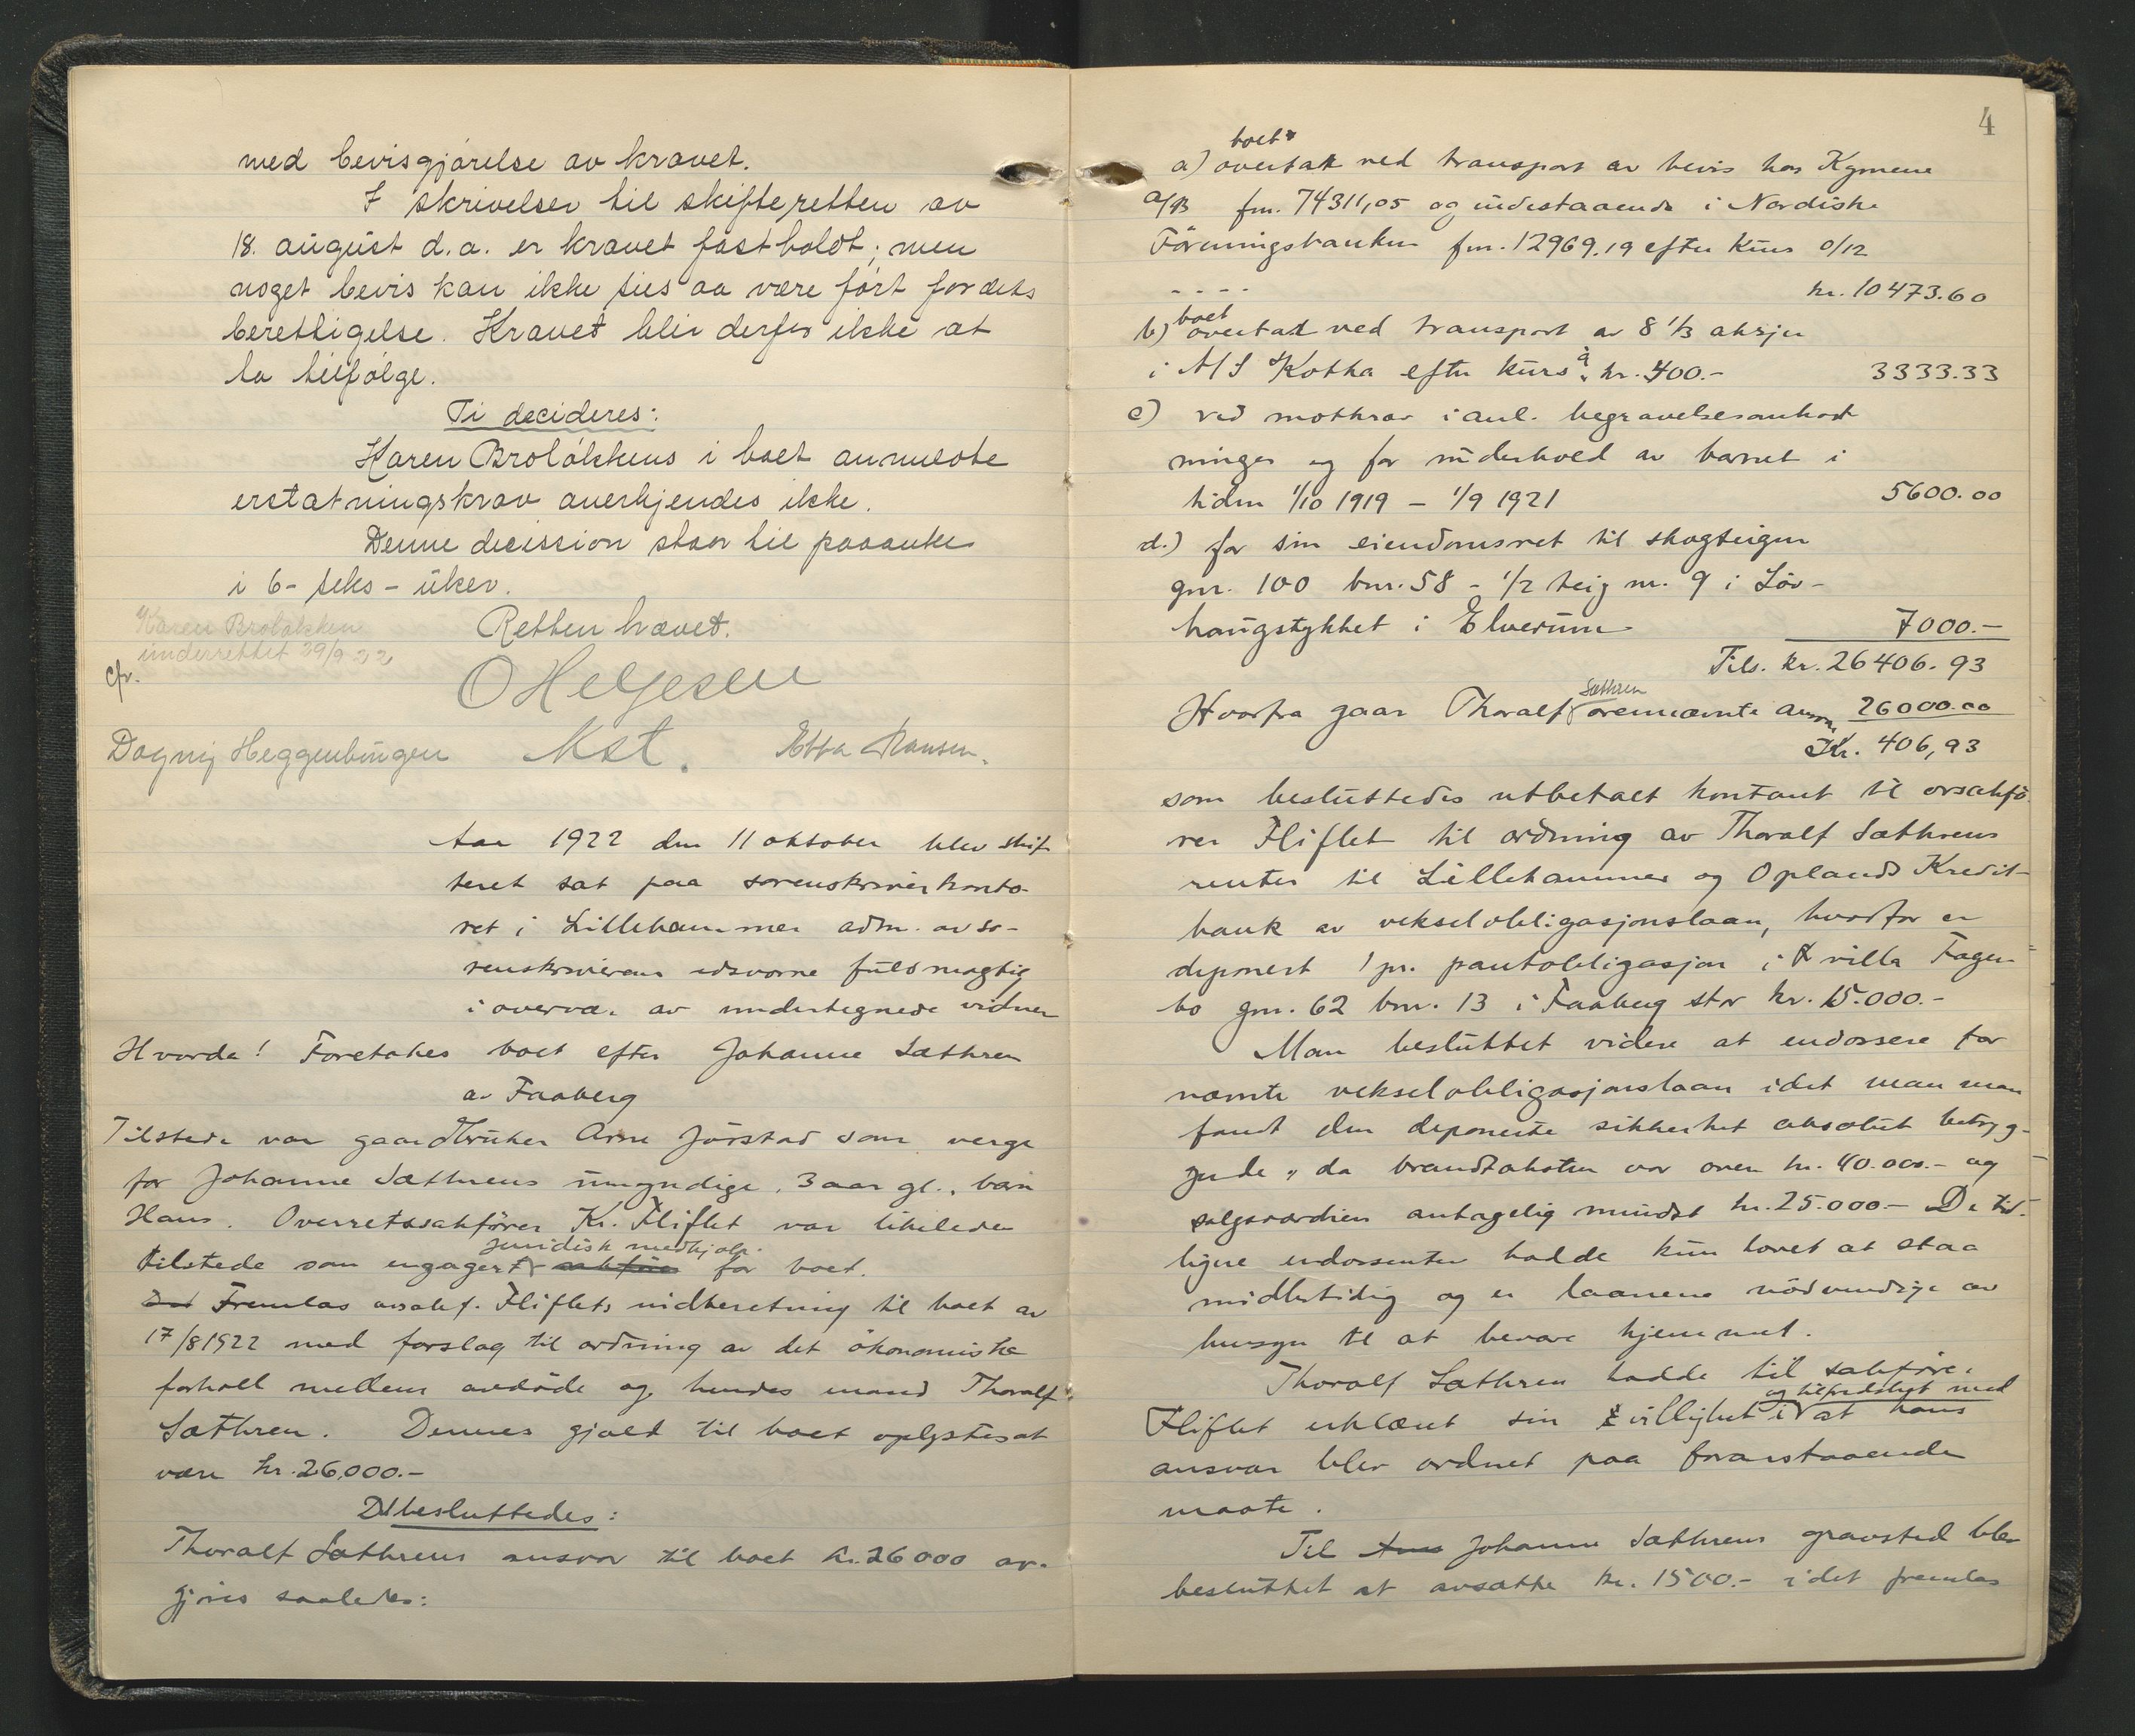 med bevisgjørelse av kravet.
I skrivelser til skifteretten av
18. august d.a. er kravet fastholdt; men
noget bevis kan ikke sies aa være ført for dets
berettigelse. Kravet blir derfor ikke at
ta tilfølge.
Ti decideres:
Karen Brolökkens i boet anmeldte
erstatningskrav anerkjendes ikke.
Denne decission staar til paaanke
i 6 - seks - uker.
Karen Brolökken
underrettet 29/9 22
Retten hævet.
cfr.
O Helgesen
Dagny Heggenhougen Kst. Ebba Hansen.
Aar 1922 den 11 oktober blev skif
teret sat paa sorenskriverkonto-
ret i Lillehammer adm. av so-
renskriverens edsvorne fuldmægtig
i overvær av undertegnede vidner
Hvorda! Foretakes boet efter Johanne Sæthren
av Faaberg
Tilstede var gaardbruker Arne Jörstad som verge
for Johanne Sæthrens umyndige, 3 aar gl., barn
Hans. Overretssakförer Kr. Fliflet var likeledes
juridisk medhjælp.
tilstede som engagert for boet.
Fremlas orsakf. Fliflets indberetning til boet av
17/8 1922 med forslag til ordning av det ökonomiske
forhold mellem avdöde og hendes mand Thoralf
Sæthren. Dennes gjæld til boet oplystes at
være kr. 26,000.-
Det besluttedes:
Thoralf Sæthrens ansvar til boet kr. 26000 av-
gjöres saaledes:
4
boet
a) overtar ved transport av bevis hos Kymene
A/B fm. 74311,05 og indestaaende i Nordiske
Föreningsbanken fm. 12969.19 efter kurs 0/12
- - - - kr. 10473.60
boet
b) overtar ved transport av 8 1/3 aksje
i M/S Kotka efter kurs à kr. 400.- 3333.33
c) ved motkrav i anl. begravelsesomkost
ninger og for underhold av barnet i
tiden 1/10 1919 - 1/9 1921 5600.00
d.) for sin eiendomsret til skogteigen
gnr. 100 bnr. 58 - 1/2 teig nr. 9 i Löv-
haugstykket i Elverum 7000.-
Tils. kr. 26406.93
Sæthren
Hvorfra gaar Thoralf ovennævnte ansvar 26000.00
Kr. 406,93
som besluttedes utbetalt kontant til orsakfö
rer Fliflet til ordning av Thoralf Sæthrens
renter til Lillehammer og Oplands Kredit-
bank av vekselobligasjonslaan, hvorfor er
deponert 1 pr. pantobligasjon i villa Fager
bo gnr. 62 bnr. 13 i Faaberg stor kr. 15.000.-
Man besluttet videre at endossere for
nævnte vekselobligasjonslaan idet man
fandt den deponerte sikkerhet absolut betryg-
gende, da brandtaksten var over kr. 40.000.- og
salgsværdien antagelig mindst kr. 25.000.- De tid-
ligere endossenter hadde kun lovet at staa
midlertidig og er laanene nödvendige av
hensyn til at bevare hjemmet.
Thoralf Sæthren hadde til sakförer
og tilfredshet med
Fliflet erklæret sin villighet i at hans
ansvar blev ordnet paa foranstaaende
maate.
Til Johanne Sæthrens gravsted blev
besluttet at avsætte kr. 1500.- idet fremlas